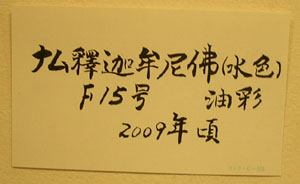 ナム釋迦牟尼佛(水色)
F15号 油彩
2009年頃